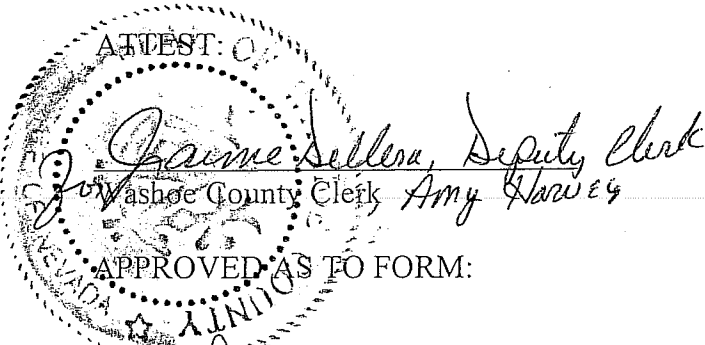 ATTEST:
Jaime Dellera, Deputy Clerk
for Washoe County Clerk, Amy Harvey
APPROVED AS TO FORM:
NEVADA
COUNTY